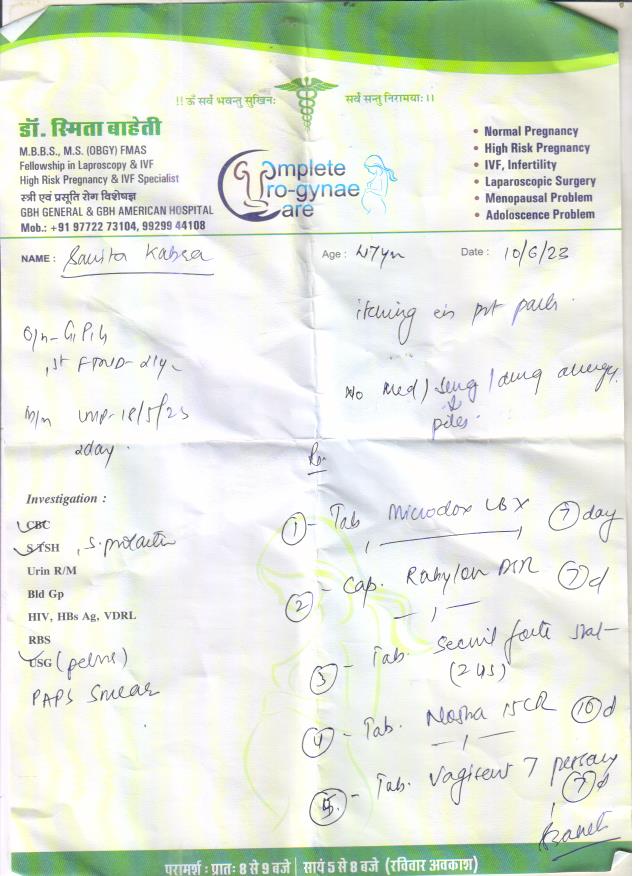 !! ॐ सर्वे भवन्तु सुखिनः सर्वे सन्तु निरामयाः ।।
डॉ. स्मिता बाहेती
M.B.B.S., M.S. (OBGY) FMAS
Fellowship in Laproscopy & IVF
High Risk Pregnancy & IVF Specialist
स्त्री एवं प्रसूति रोग विशेषज्ञ
GBH GENERAL & GBH AMERICAN HOSPITAL
Mob.: +91 97722 73104, 99299 44108
Complete
Uro-gynae
Care
• Normal Pregnancy
• High Risk Pregnancy
• IVF, Infertility
• Laparoscopic Surgery
• Menopausal Problem
• Adoloscence Problem
NAME : Kabra
Age : 47yr
Date : 10/6/23
itching
O/h-
1st FTND-21y
No Med / / drug allergy
piles
M/h LMP-18/5/23
2day
Rx
Investigation :
CBC
S TSH , S. prolactin
Urin R/M
Bld Gp
HIV, HBs Ag, VDRL
RBS
USG (pelvis)
PAPS Smear
1 - Tab Microdox LBX 7 day
2 - Cap. Rabylon DSR 7 d
3 - Tab. Secnil forte stat
4 - Tab. 15CR 10 d
5 - Tab. 7 pessary
7 d
परामर्श : प्रातः 8 से 9 बजे | सायं 5 से 8 बजे (रविवार अवकाश)